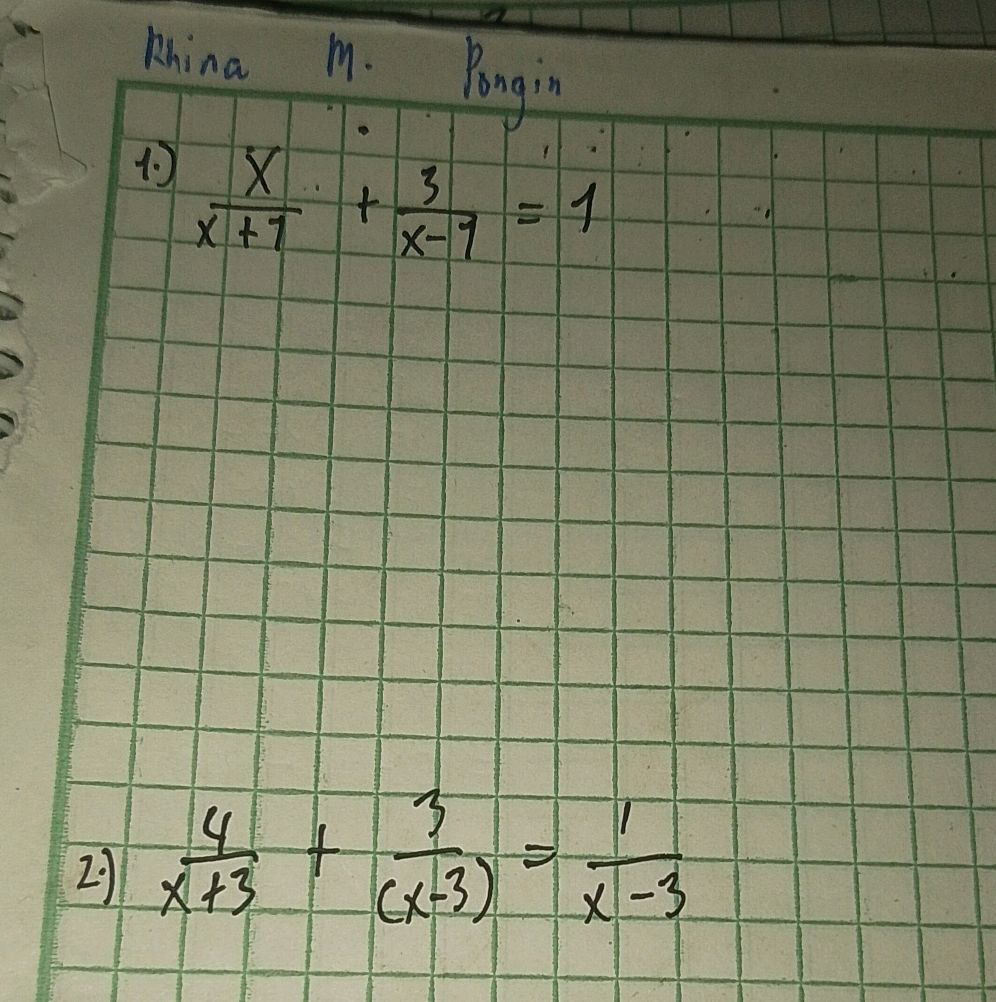 Rhina M. Pongin
1.) x/(x+1) + 3/(x-1) = 1
2.) 4/(x+3) + 3/(x-3) = 1/(x-3)